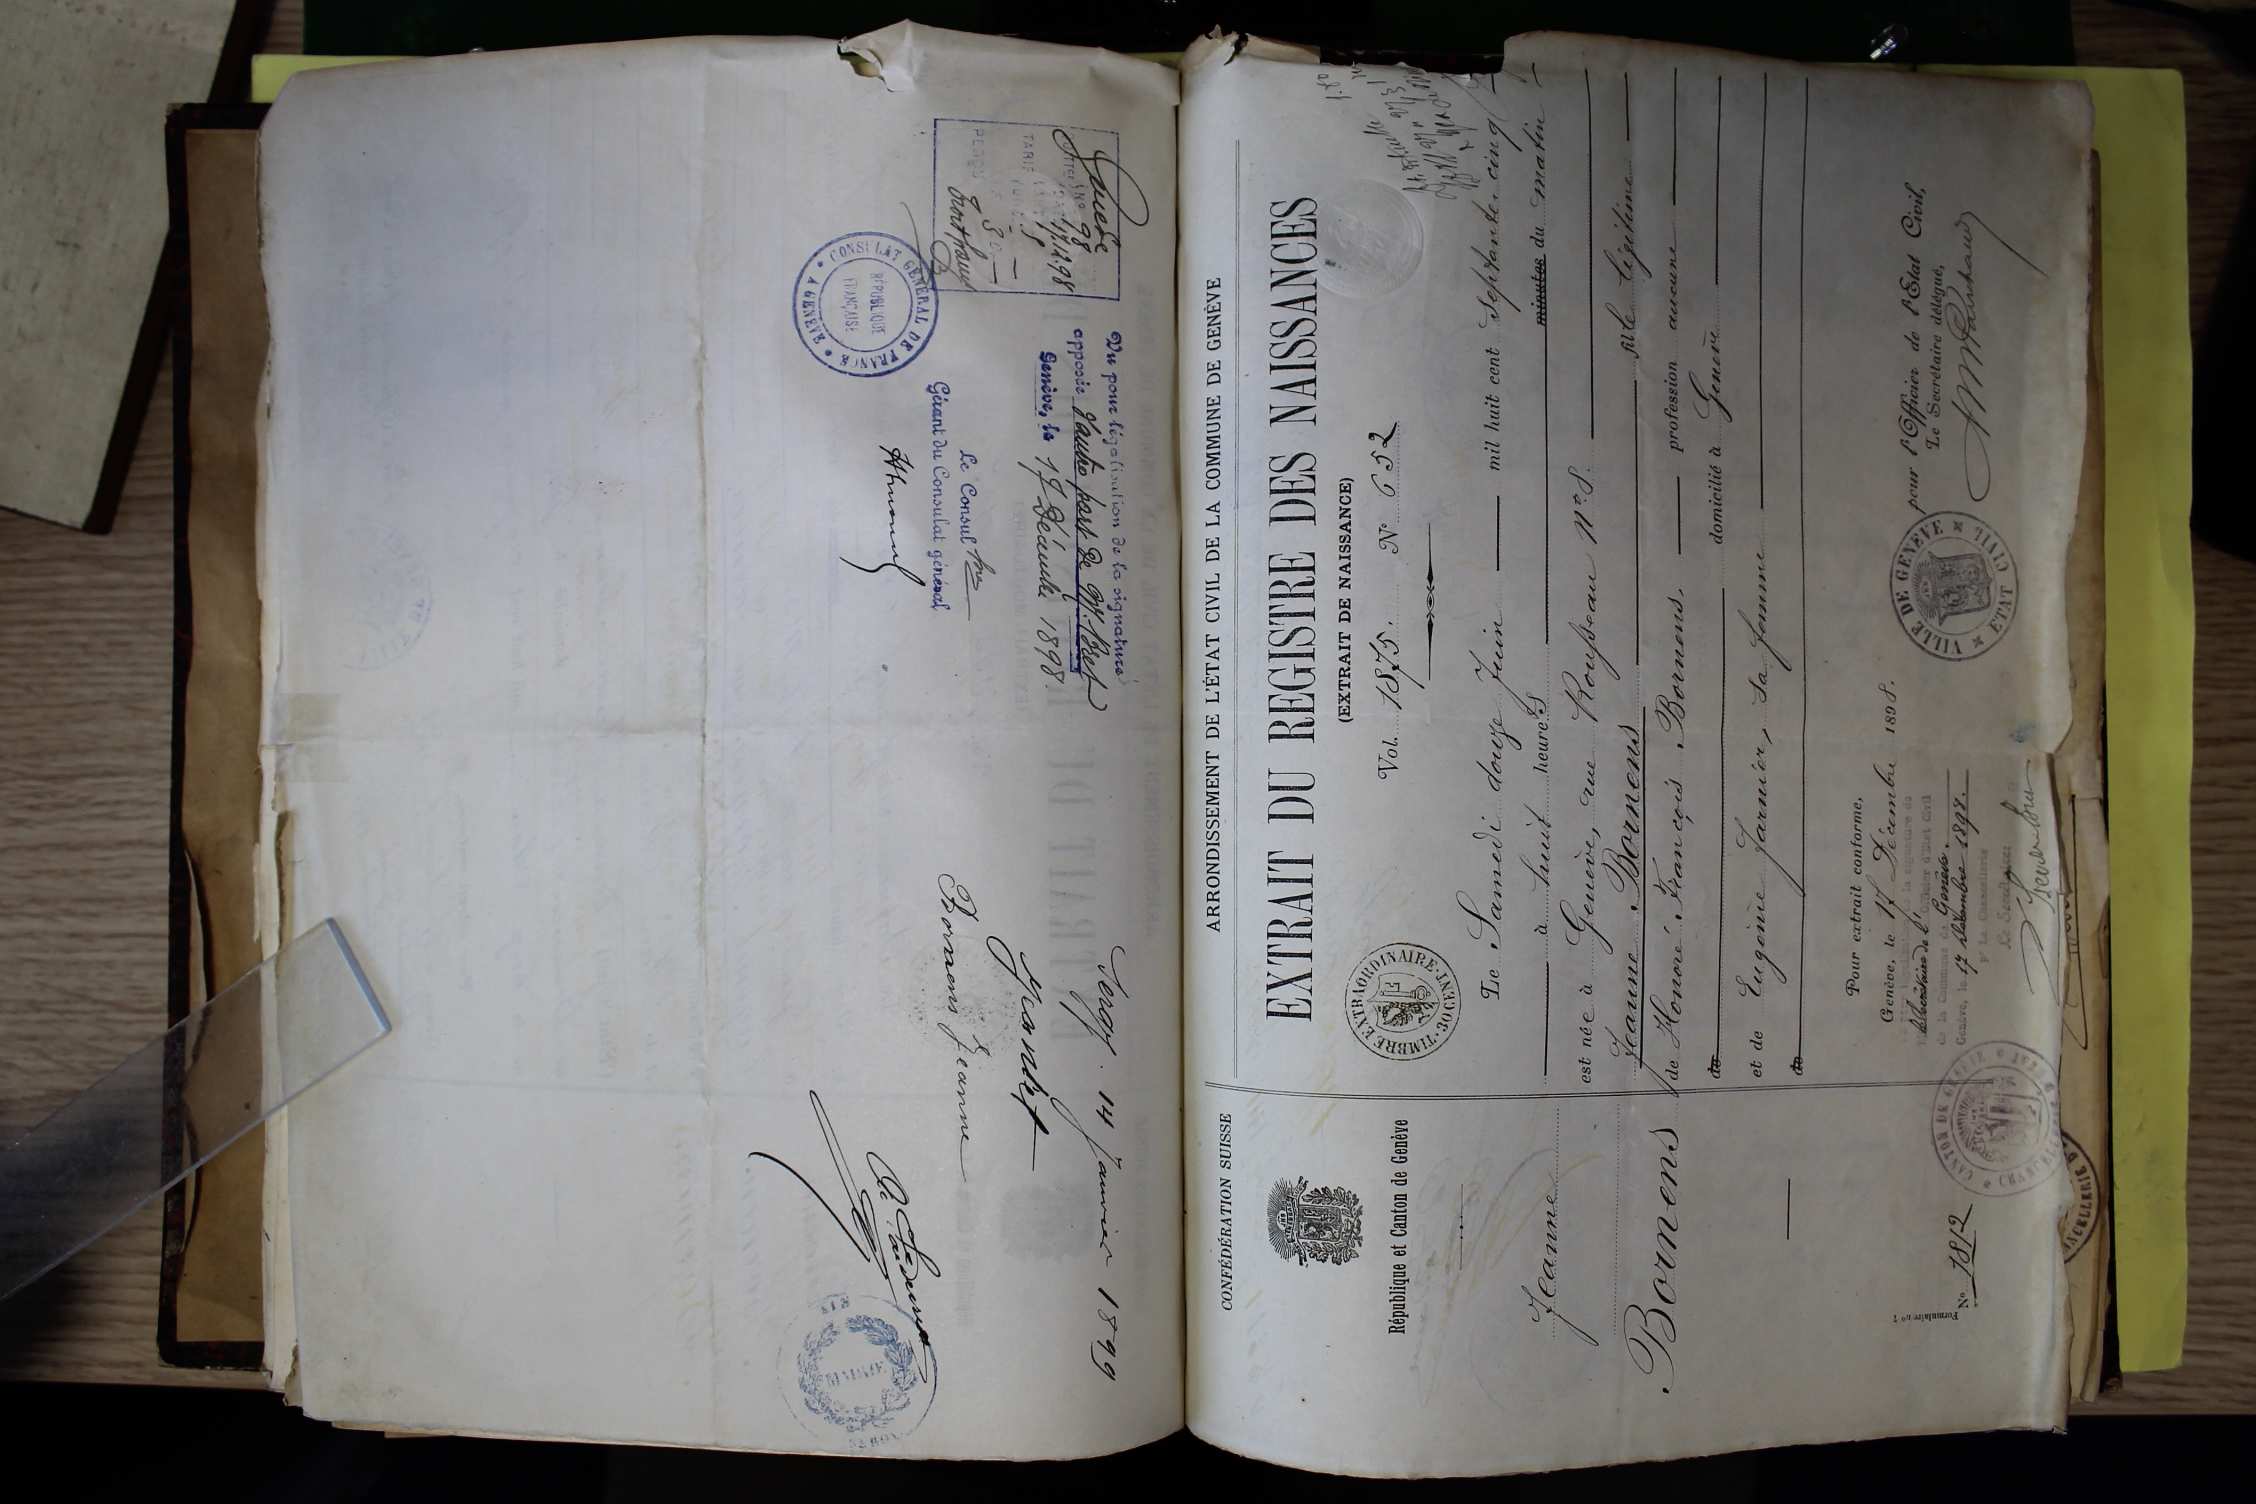 Genève
98 17.12.98
TARIF
CONSULAT GÉNÉRAL DE FRANCE
RÉPUBLIQUE
FRANÇAISE
A GENÈVE
Vu pour légalisation de la signature
apposée d'autre part de M.
Genève, le 17 Décembre 1898.
Le Consul
Gérant du Consulat général
14 Janvier 1899
Jeantet
Bornens Jeanne
CONFÉDÉRATION SUISSE
République et Canton de Genève
Jeanne
Bornens
Formulaire no 1
No 1812
ARRONDISSEMENT DE L'ÉTAT CIVIL DE LA COMMUNE DE GENÈVE
EXTRAIT DU REGISTRE DES NAISSANCES
(EXTRAIT DE NAISSANCE)
Vol. 1875. No 652
TIMBRE EXTRAORDINAIRE 30 CENT.
Le Samedi douze Juin mil huit cent septante cinq
à huit heures minutes du matin
est née à Genève, rue Rousseau no 8.
Jeanne Bornens fille légitime
de Honoré François Bornens, profession aucune
de domicilié à Genève
et de Eugénie Jarnier, sa femme
de
Pour extrait conforme,
Genève, le 17 Décembre 1898.
pour l'Officier de l'Etat Civil,
Le Secrétaire délégué,
VILLE DE GENÈVE
ETAT CIVIL
la signature de
d'Etat Civil
de la Commune de Genève.
Genève, le 17 Décembre 1898.
Pr la Chancellerie
Le Secrétaire
CANTON DE GENÈVE
CHANCELLERIE